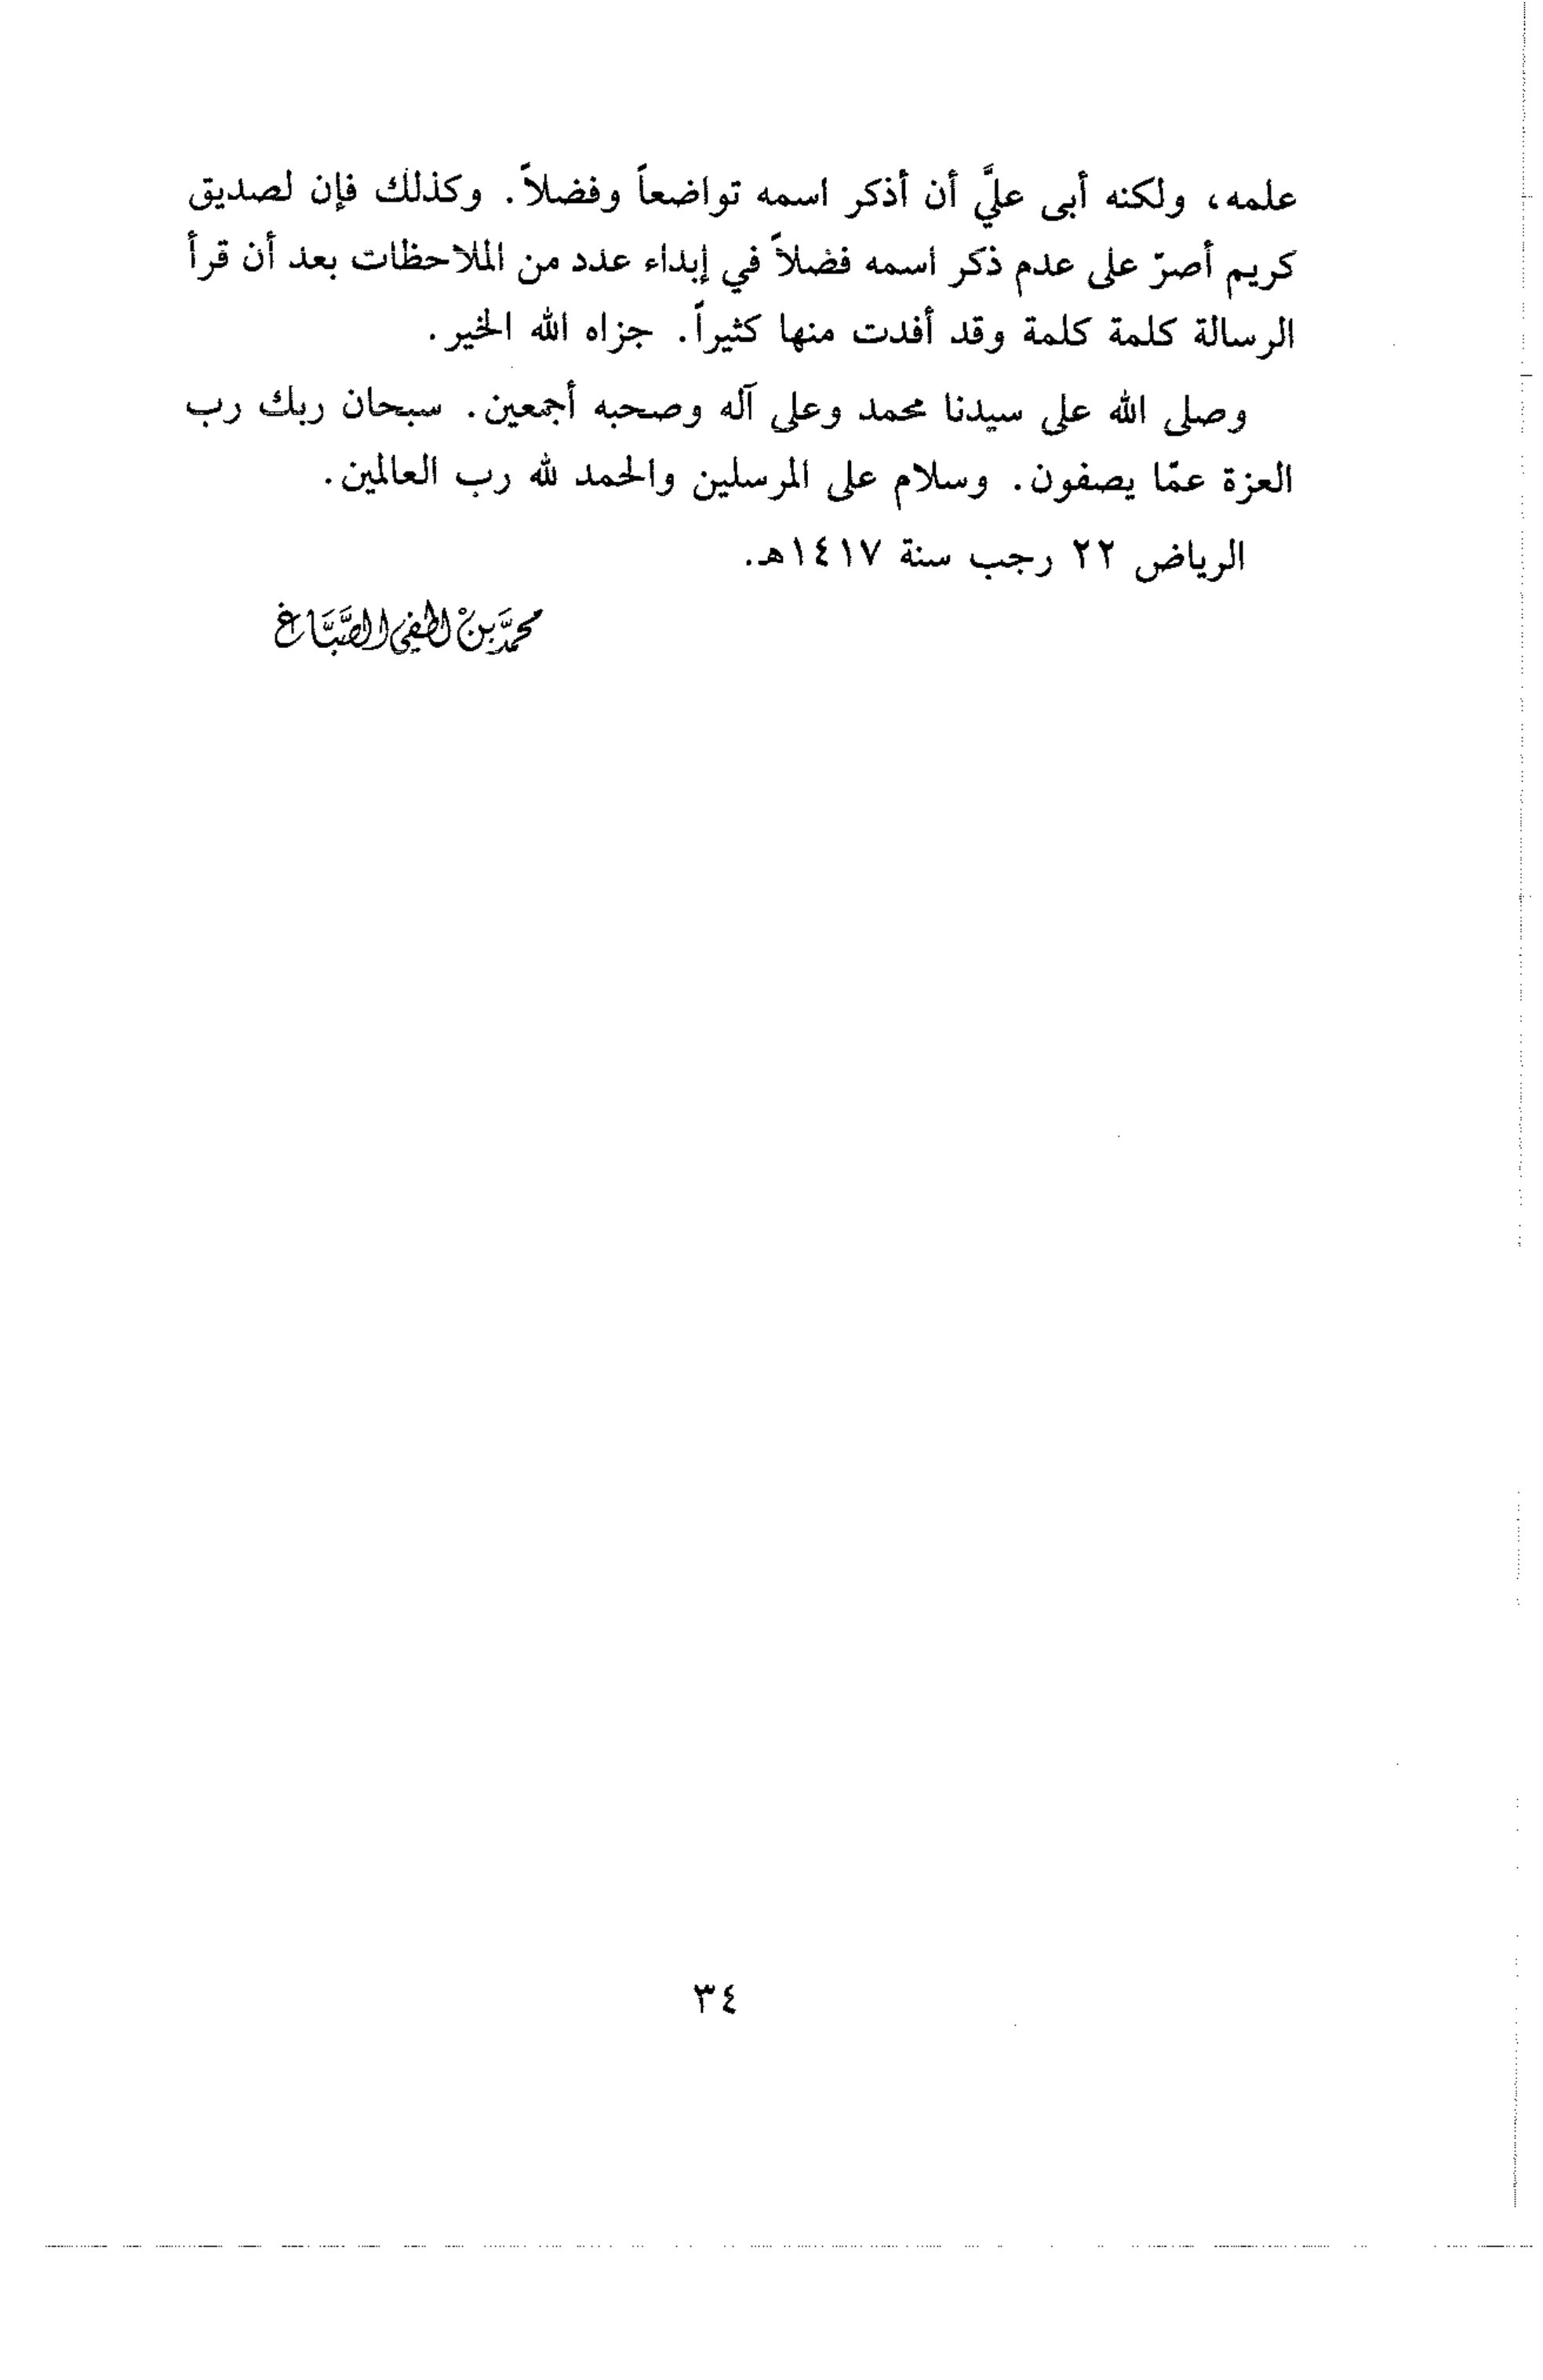 علمه، ولكنه أبى عليَّ أن أذكر اسمه تواضعاً وفضلاً. وكذلك فإن لصديق
كريم أصرّ على عدم ذكر اسمه فضلاً في إبداء عدد من الملاحظات بعد أن قرأ
الرسالة كلمة كلمة وقد أفدت منها كثيراً. جزاه الله الخير.
وصلى الله على سيدنا محمد وعلى آله وصحبه أجمعين. سبحان ربك رب
العزة عمّا يصفون. وسلام على المرسلين والحمد لله رب العالمين.
الرياض ٢٢ رجب سنة ١٤١٧هـ.
محمَّد بنْ لطفي الصَّبَّاغ
٣٤